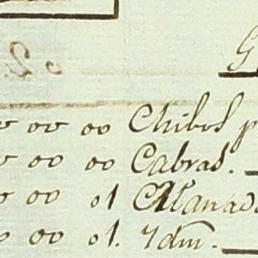 G
oo oo Chibos p
oo oo Cabras.
oo o1 Manad
oo o1. Ydm.